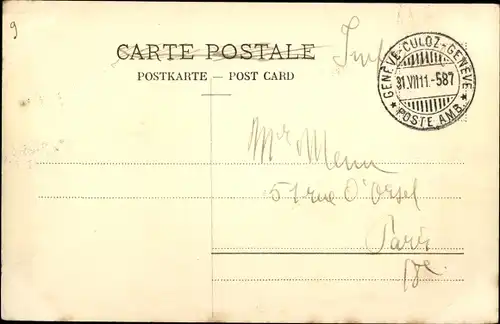 9
CARTE POSTALE
POSTKARTE — POST CARD
GENÈVE-CULOZ-GENÈVE
31.VII11.-587
* POSTE AMB. *
Mr Menu
51 rue d'Orsel
Paris